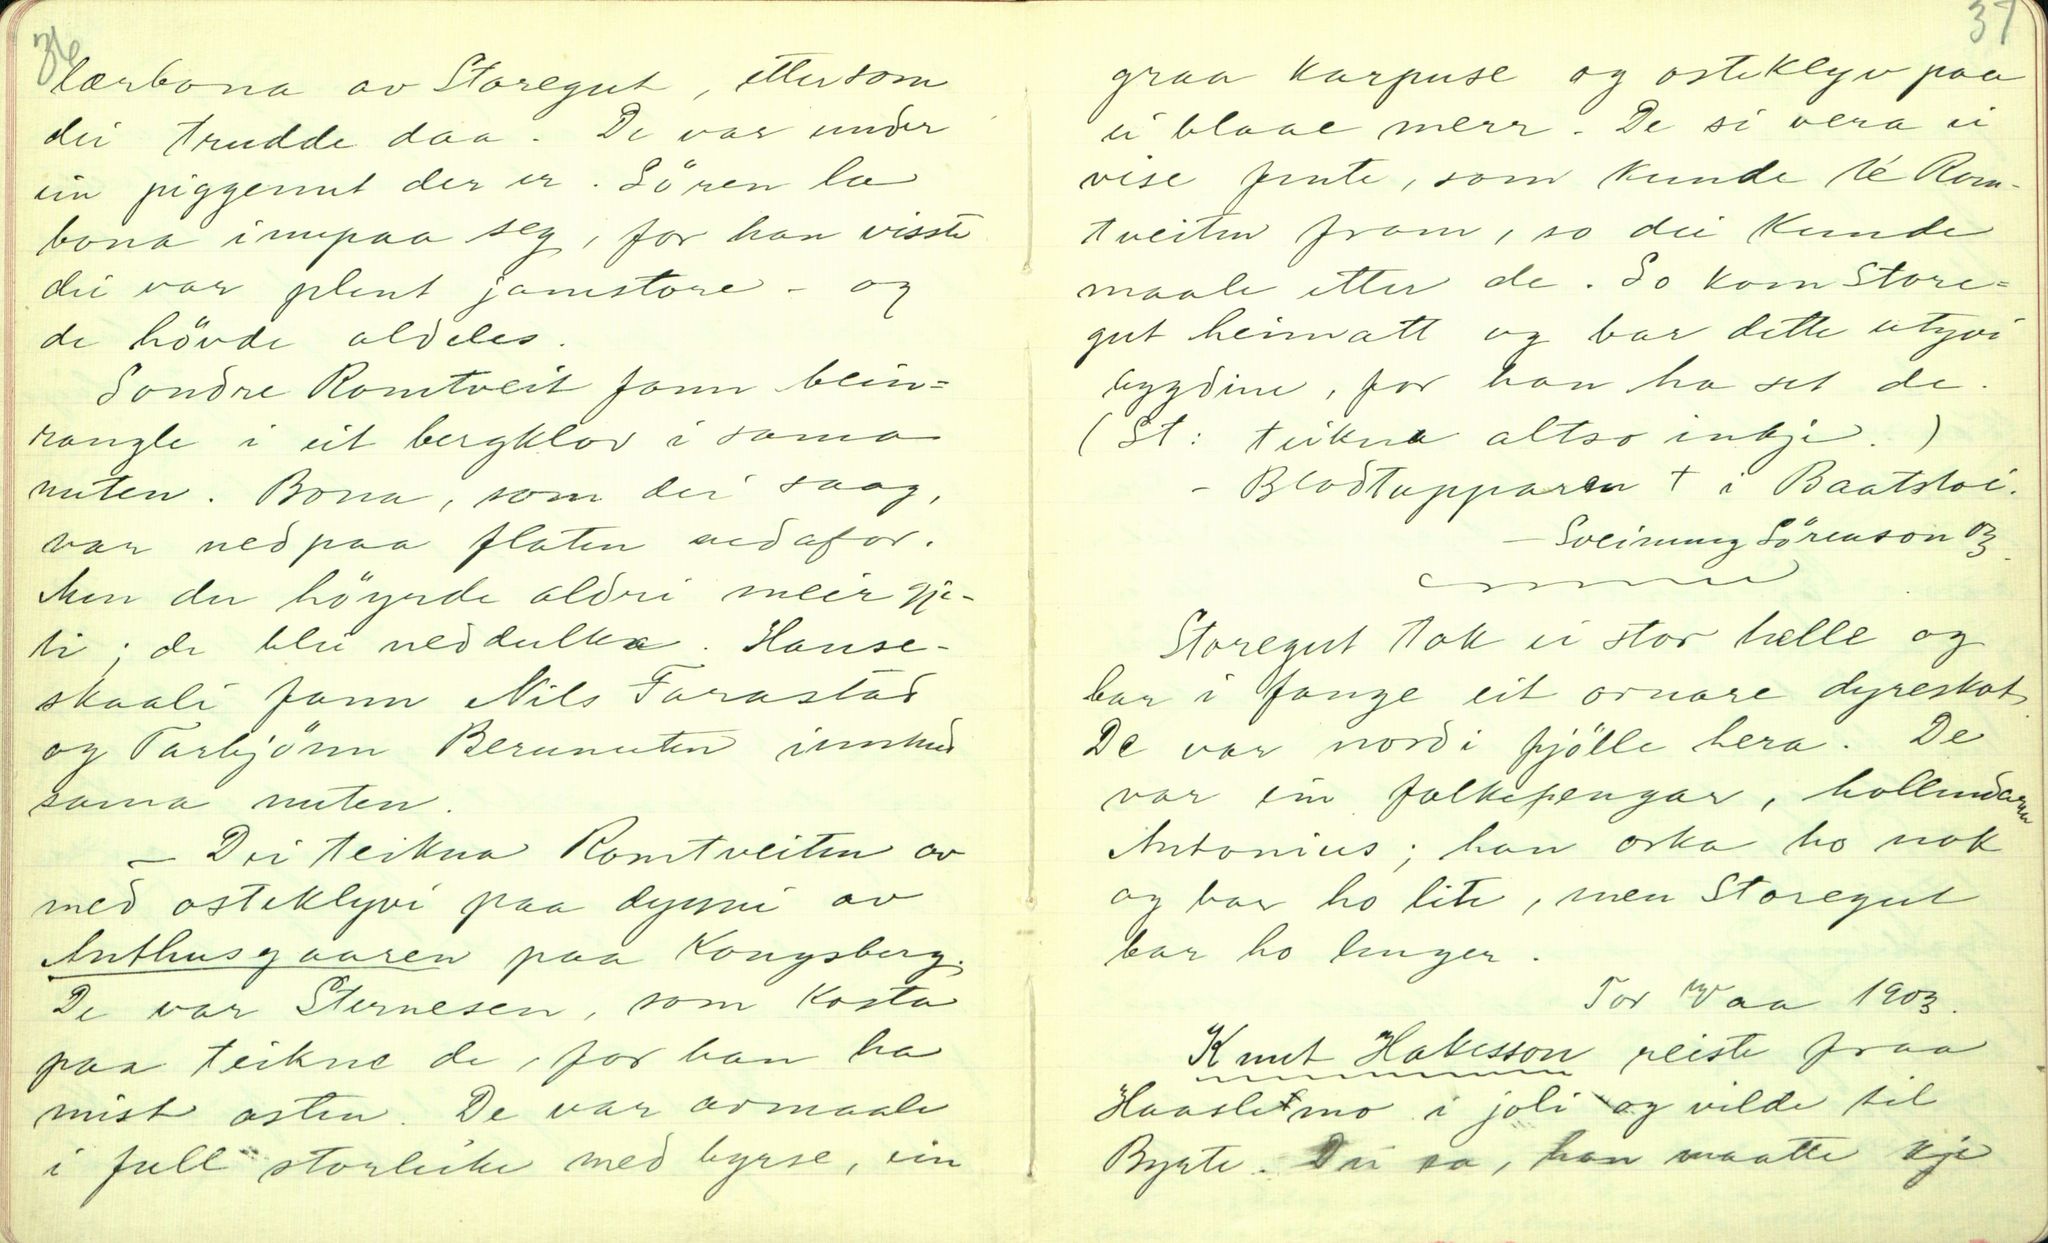 36
lærbona av Storegut, ettersom
dei trudde daa. De var under
ein piggenut der er. Sören la
bona innpaa seg, for han visste
dei var plent jamstore - og
de hövde aldeles.
Sondre Romtveit fann bein-
rangle i eit bergklov i sama
nuten. Bona, som dei saag,
var nedpaa flaten nedafor.
Men der höyrde aldri meir gje-
ti; de blei neddulka. Hause-
skaali fann Nils Farastad
og Tarbjönn Berunuten innmed
sama nuten.
- Dei teikna Romtveiten av
med osteklyvi paa dynni av
Anthusgaaren paa Kongsberg.
De var Sternesen, som kosta
paa teikne de, for han ha
mist osten. De var avmaale
i full storleike med byrse, ein
37
graa karpuse og osteklyv paa
ei blaae merr. De si vera ei
vise jente, som kunde té Rom-
tveiten fram, so dei kunde
maale etter de. So kom Store=
gut heimatt og bar dette utyvi
bygdine, for han ha set de.
(St: teikna altso inkje.)
- Blodtapparen † i Baatstoi.
- Sveinung Sörenson B.
Storegut tok ei stor helle og
bar i fange eit ornare dyreskot.
De var nordi fjölle hera. De
var ein falkefengar, hollendaren
Antonius; han orka ho nok
og bar ho lite, men Storegut
bar ho lenger.
Tor Vaa 1903.
Knut Hakesson reiste fraa
Haaslemo i joli og vilde til
Byrte. Dei sa, han maatte kje